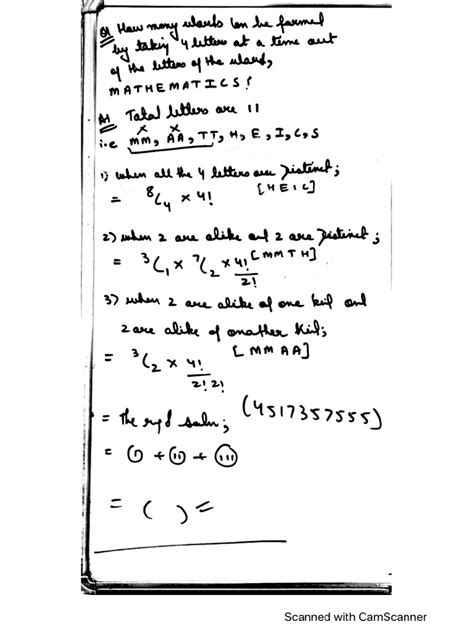 Q How many words can be formed
by taking 4 letters at a time out
of the letters of the word,
MATHEMATICS?
A1 Total letters are 11
x x
i.e MM, AA, TT, H, E, I, C, S
1) when all the 4 letters are Distinct;
= ⁸C₄ x 4! [HEIC]
2) when 2 are alike and 2 are Distinct;
= ³C₁ x ⁷C₂ x 4!/2! [MMTH]
3) when 2 are alike of one kid and
2 are alike of another kid;
= ³C₂ x 4!/2!2! [MMAA]
= The rqd soln; (4517357555)
= (i) + (ii) + (iii)
= ( ) =
Scanned with CamScanner